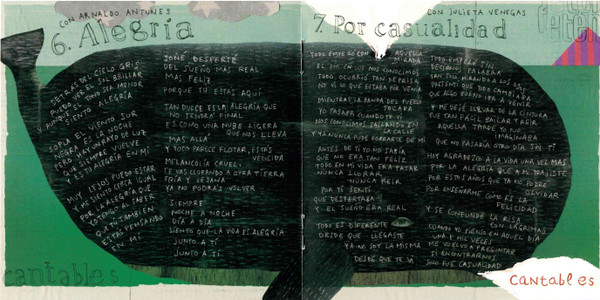 CON ARNALDO ANTUNES
6. Alegría
DETRÁS DEL CIELO GRIS
PUEDO VER EL SOL BRILLAR
Y AUNQUE EL TONO SEA MENOR
SIENTO ALEGRÍA
SOPLA EL VIENTO SUR
NEGRA ES LA NOCHE
PERO HAY UN RAYO DE LUZ
QUE SIEMPRE VUELVE
Y ES ALEGRÍA EN MÍ
MUY LEJOS PUEDO ESTAR
Y TE SIENTO CERCA IGUAL
POR LA ALEGRÍA QUE
ES TODO AL SABER
QUE TÚ TAMBIÉN
ESTÁS PENSANDO
EN MÍ
SOÑÉ DESPERTÉ
DEL SUEÑO MÁS REAL
MÁS FELIZ
PORQUE TÚ ESTÁS AQUÍ
TAN DULCE ES LA ALEGRÍA QUE
NO TENDRÁ FINAL
ES COMO UNA NUBE LIGERA
QUE NOS ELEVA
MÁS ALLÁ
Y TODO PARECE FLOTAR, ESTÁS
VENCIDA
MELANCOLÍA CRUEL,
TE VAS LLORANDO A OTRA TIERRA
FRÍA Y LEJANA
YA NO PODRÁS VOLVER
SIEMPRE
NOCHE A NOCHE
DÍA A DÍA
SIENTO QUE LA VIDA ES ALEGRÍA
JUNTO A TI
JUNTO A TI.
cantables
CON JULIETA VENEGAS
7. Por casualidad
TODO EMPEZÓ CON AQUELLA
MIRADA
EL DÍA EN QUE NOS CONOCIMOS
TODO OCURRIÓ TAN DEPRISA
NO VI LO QUE ESTABA POR VENIR
MIENTRAS LA BANDA DEL PUEBLO
TOCABA
YO PASABA CUANDO TÚ VI
NOS CONOCIMOS BAILANDO EN
LA CALLE
Y YA NUNCA PUDE FORMARTE DE MÍ
ANTES DE TI YO NO SABÍA
QUE NO ERA TAN FELIZ
TODO EN MI VIDA ERA TRATAR
NUNCA LLORAR
NUNCA REÍR
POR TI SENTÍ
QUE DESPERTABA
Y EL SUEÑO ERA REAL
TODO ES DIFERENTE
DESDE QUE LLEGASTE
YA NO SOY LA MISMA
DESDE QUE TE VI
TODO EMPEZÓ SIN
DECIRNOS PALABRA
TAN SOLO MIRANDO A LOS OJOS
PRESENTÍ QUE DOS CAMBIABA
QUE ALGO BUENO IBA A VENIR
Y ME DEJÉ LLEVAR DE LA CINTURA
FUE TAN FÁCIL BAILAR Y REÍR
AQUELLA TARDE YO NO
IMAGINABA
QUE NO PASARÍA OTRO DÍA SIN TI
HOY AGRADEZCO A LA VIDA UNA VEZ MÁS
LA ALEGRÍA QUE A MÍ TRAJISTE
POR ESTE AMOR QUE YA NO PUEDO
OLVIDAR
POR ENSEÑARME CÓMO ES LA
FELICIDAD
Y SE CONFUNDE LA RISA
CON LÁGRIMAS
CUANDO YO PIENSO EN AQUEL DÍA
UNA Y MIL VECES
ME VUELVO A PREGUNTAR
SI ENCONTRARNOS
SOLO FUE CASUALIDAD
cantables